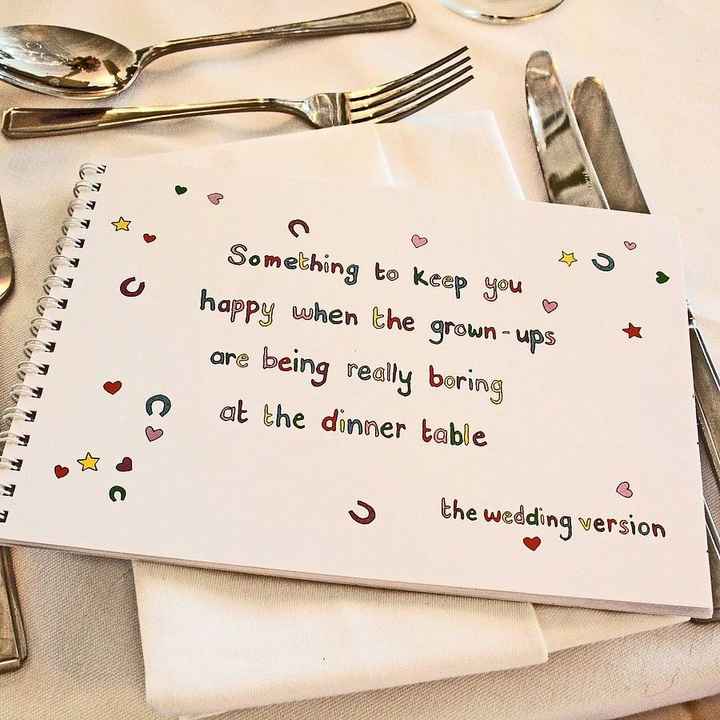 Something to keep you
happy when the grown-ups
are being really boring
at the dinner table
the wedding version